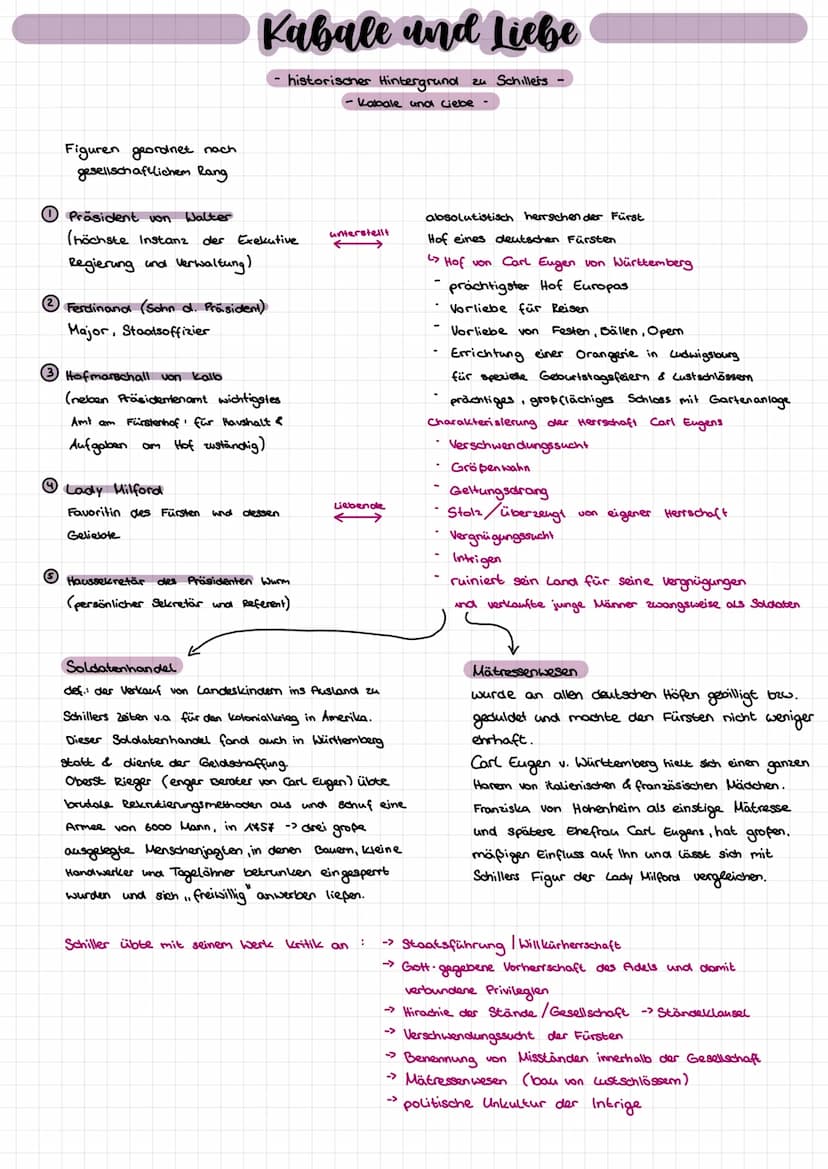 Kabale und Liebe
- historischer Hintergrund zu Schillers -
- Kabale und Liebe -
Figuren geordnet nach
gesellschaftlichem Rang
① Präsident von Walter
(höchste Instanz der Exekutive
Regierung und Verwaltung)
unterstellt
② Ferdinand (Sohn d. Präsident)
Major, Staatsoffizier
③ Hofmarschall von Kalb
(neben Präsidentenamt wichtigstes
Amt am Fürstenhof, für Haushalt &
Aufgaben am Hof zuständig)
④ Lady Milford
Favoritin des Fürsten und dessen
Geliebte
Liebende
⑤ Haussekretär des Präsidenten Wurm
(persönlicher Sekretär und Referent)
absolutistisch herrschender Fürst
Hof eines deutschen Fürsten
↳ Hof von Carl Eugen von Württemberg
- prächtigster Hof Europas
- Vorliebe für Reisen
- Vorliebe von Festen, Bällen, Opern
- Errichtung einer Orangerie in Ludwigsburg
für spezielle Geburtstagsfeiern & Lustschlössern
- prächtiges, großflächiges Schloss mit Gartenanlage
Charakterisierung der Herrschaft Carl Eugens
- Verschwendungssucht
- Größenwahn
- Geltungsdrang
- Stolz/überzeugt von eigener Herrschaft
- Vergnügungssucht
- Intrigen
- ruiniert sein Land für seine Vergnügungen
und verkaufte junge Männer zwangsweise als Soldaten
Soldatenhandel
def.: der Verkauf von Landeskindern ins Ausland zu
Schillers Zeiten v.a. für den Kolonialkrieg in Amerika.
Dieser Soldatenhandel fand auch in Württemberg
statt & diente der Geldschaffung.
Oberst Rieger (enger Berater von Carl Eugen) übte
brutale Rekrutierungsmethoden aus und schuf eine
Armee von 6000 Mann, in 1457 -> drei große
ausgelegte Menschenjagten, in denen Bauern, kleine
Handwerker und Tagelöhner betrunken eingesperrt
wurden und sich „freiwillig" anwerben ließen.
Mätressenwesen
wurde an allen deutschen Höfen gebilligt bzw.
geduldet und machte den Fürsten nicht weniger
ehrhaft.
Carl Eugen v. Württemberg hielt sich einen ganzen
Harem von italienischen & französischen Mädchen.
Franziska von Hohenheim als einstige Mätresse
und spätere Ehefrau Carl Eugens, hat großen,
mäßigen Einfluss auf Ihn und lässt sich mit
Schillers Figur der Lady Milford vergleichen.
Schiller übte mit seinem Werk Kritik an :
-> Staatsführung | Willkürherrschaft
-> Gott-gegebene Vorherrschaft des Adels und damit
verbundene Privilegien
-> Hirachie der Stände/Gesellschaft -> Ständeklausel
-> Verschwendungssucht der Fürsten
-> Benennung von Misständen innerhalb der Gesellschaft
-> Mätressenwesen (bau von Lustschlössern)
-> politische Unkultur der Intrige